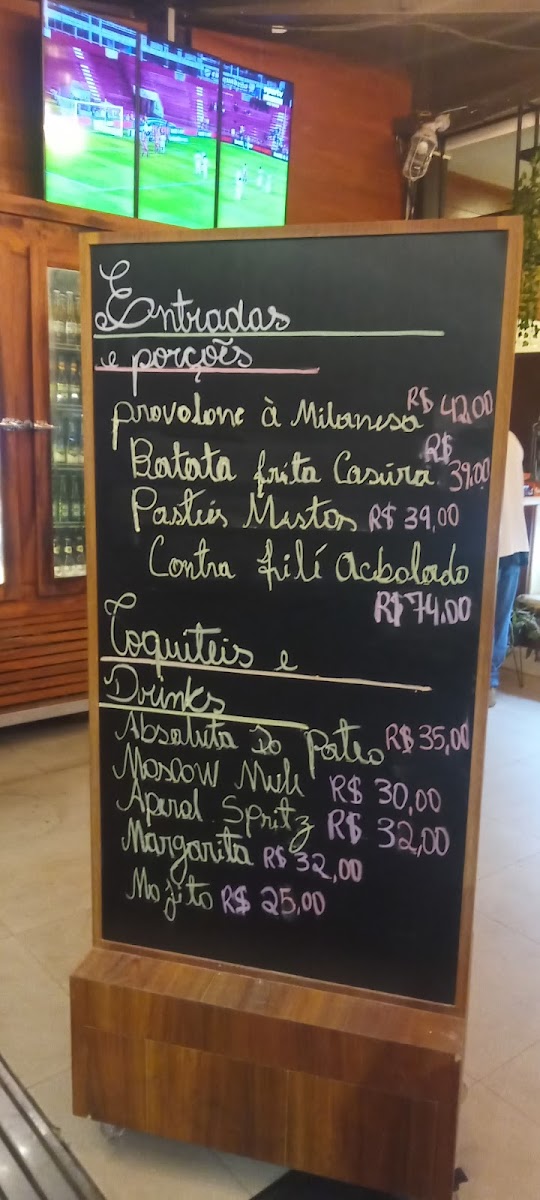 Entradas
e porções
provolone à Milanesa R$ 42,00
Batata frita Caseira R$ 39,00
Pasteis Mistos R$ 39,00
Contra filé Acebolado
R$ 74,00
Coquiteis e
Drinks
Absoluta Do Pateo R$ 35,00
Moscow Mule R$ 30,00
Aperol Spritz R$ 32,00
Margarita R$ 32,00
Mojito R$ 25,00